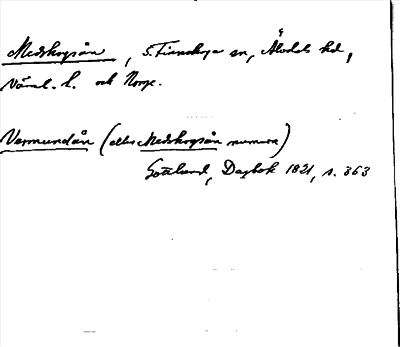 Medskogsån, S. Finnskoga sn, Älvdals hd,
Värml. l. och Norge.
Varmundån (eller Medskogsån numera)
Gottlund, Dagbok 1821, s. 363